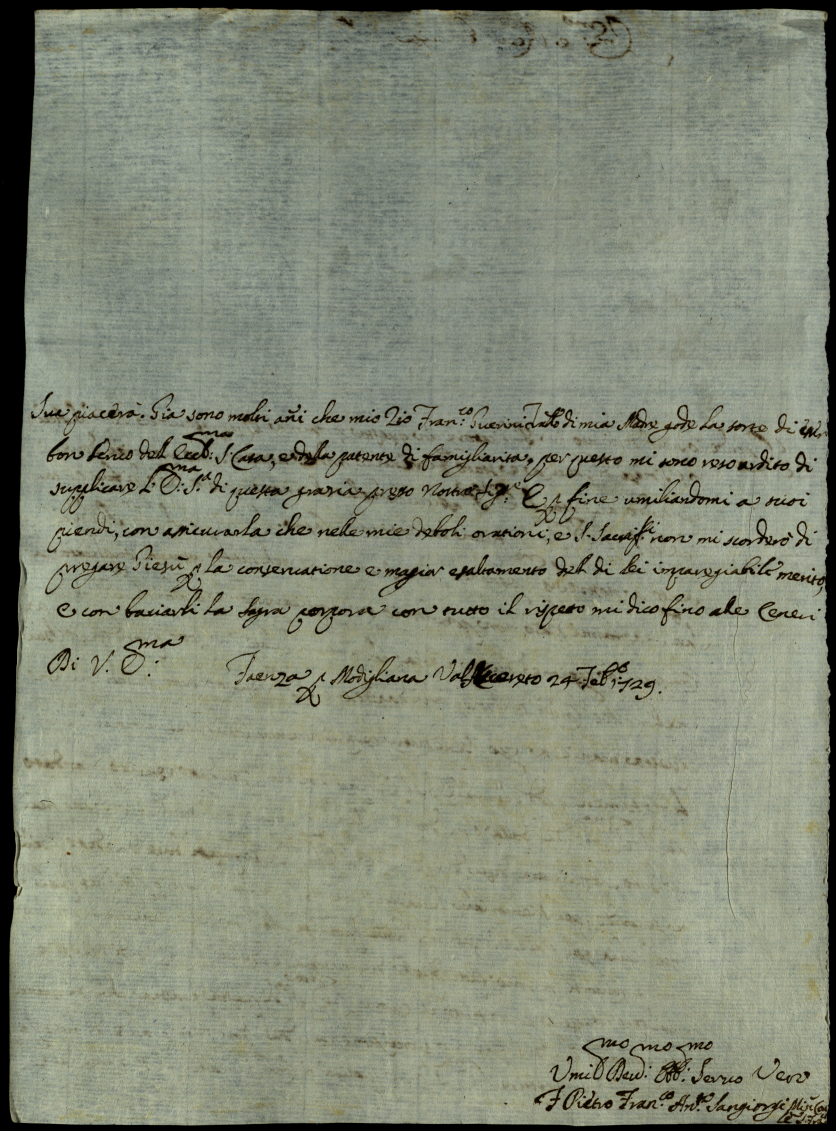 Sua piacerà. Gia sono molti añi che mio Zio Fran.co Guerini Fratello di mia Madre gode la sorte di
bon servo dell Ecc.ma S. Casa, e della patente di famigliarita, per questo mi sono reso ardito di
supplicare L'E.ma S.a di questa grazia presso E p fine umiliandomi a suoi
piendi, con assicurarla che nelle mie deboli orationi, e S. Sacriff. non mi scorderò di
pregare Giesù p la conservatione e magior esaltamento dell di lei impareggiabile merito,
e con baciarli la Sagra porpora con tutto il rispetto mi dico fino alle Ceneri
Di V. E.ma
Faenza p Modigliana Feb.o 1729.
Umil.mo Dev.mo Obb.mo Servo Vero
F Pietro Fran.co Ant.o Sangiorgi Min.